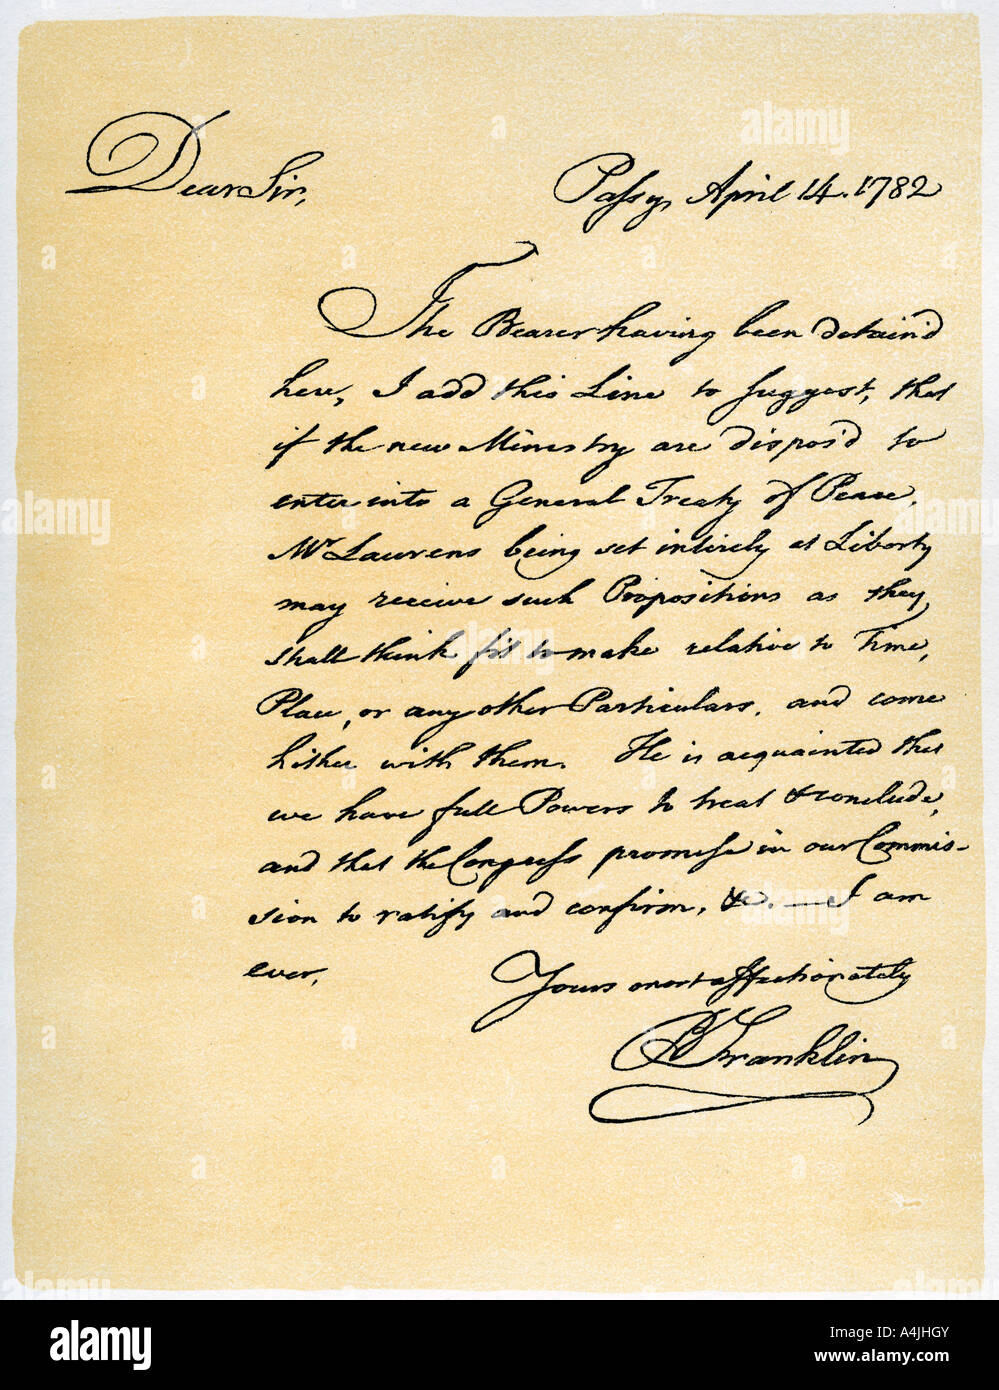 Dear Sir,
Passy, April 14. 1782
The Bearer having been detain'd
here, I add this Line to suggest, that
if the new Ministry are dispos'd to
enter into a General Treaty of Peace,
Mr Laurens being set intirely at Liberty
may receive such Propositions as they
shall think fit to make relative to Time,
Place, or any other Particulars, and come
hither with them. He is acquainted that
we have full Powers to treat & conclude,
and that the Congress promise in our Commis-
sion to ratify and confirm, &c. — I am
ever,
Yours most affectionately
B Franklin
alamy
Image ID: A4JHGY
www.alamy.com